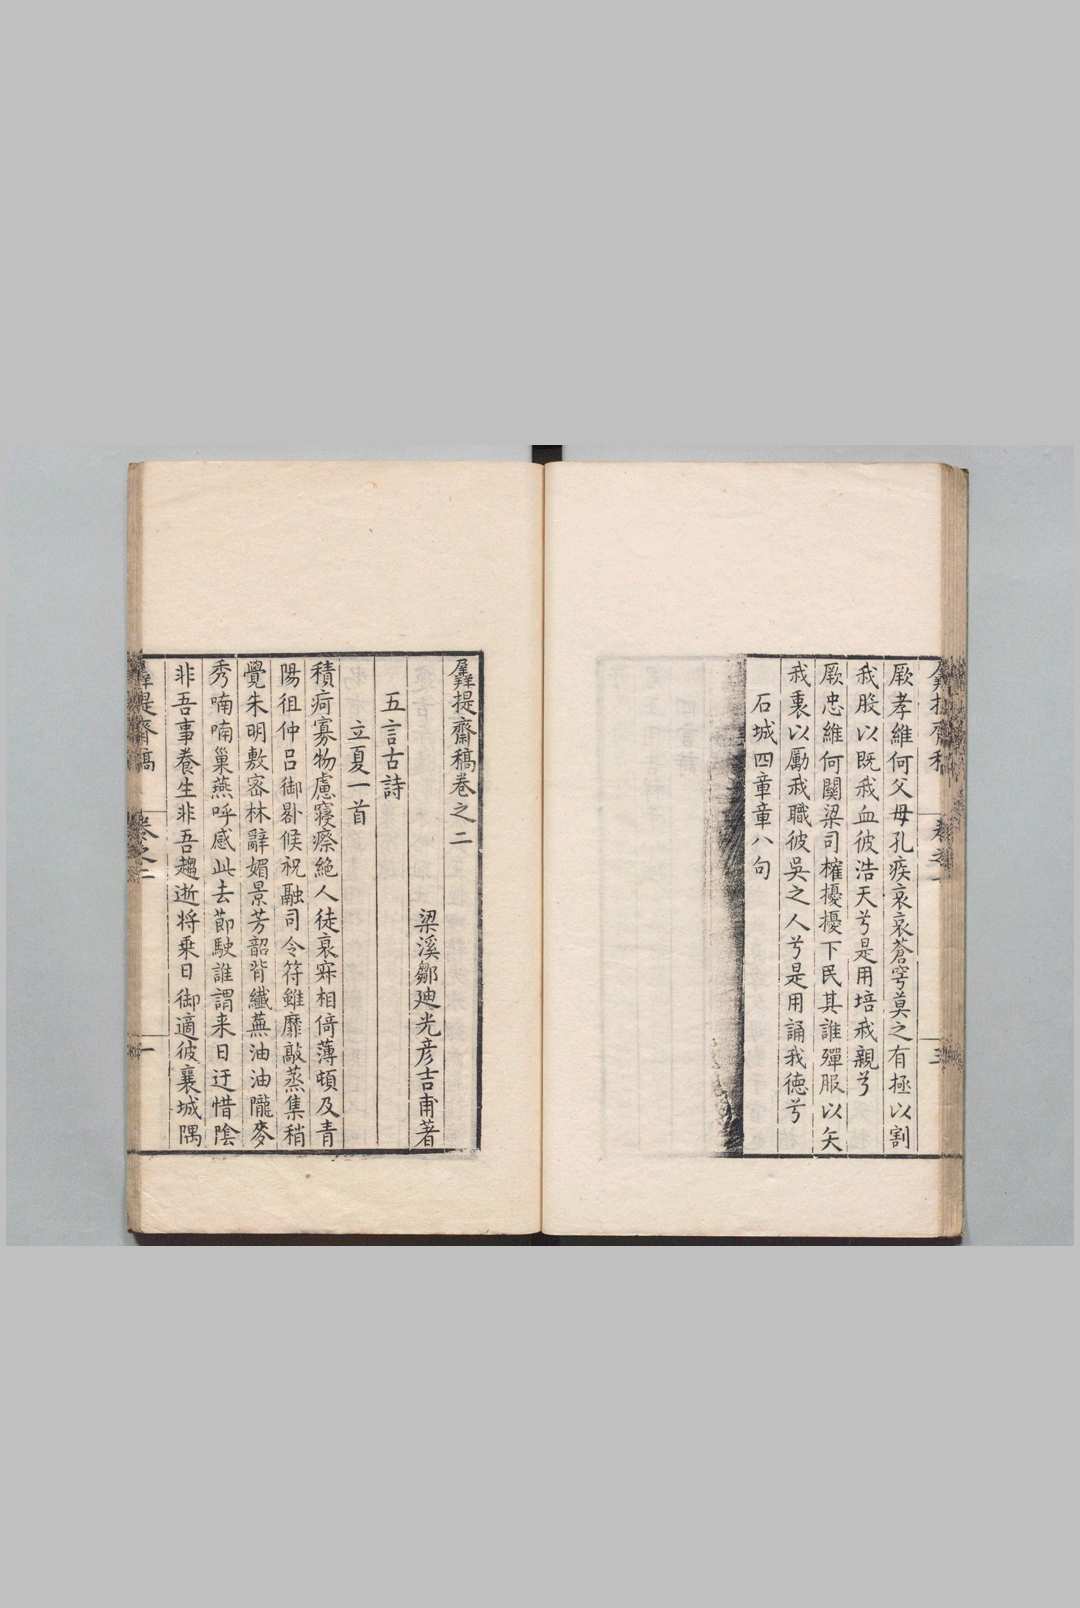 厥孝維何父母孔疾哀哀蒼穹莫之有極以割
我股以既我血彼浩天兮是用培我親兮
厥忠維何關梁司榷擾擾下民其誰殫服以矢
我衷以勵我職彼吳之人兮是用誦我德兮
石城四章章八句
羼提齋稿卷之二
梁溪鄒迪光彥吉甫著
五言古詩
立夏一首
積疴寡物慮寢瘵絕人徒哀寐相倚薄頓及青
陽徂仲呂御晷候祝融司令符雖靡敲蒸集稍
覺朱明敷密林辭媚景芳韶背纖蕪油油隴麥
秀喃喃巢燕呼感此去節駛誰謂来日迂惜陰
非吾事養生非吾趨逝将乗日御適彼襄城隅
羼提齋稿
卷之二
一